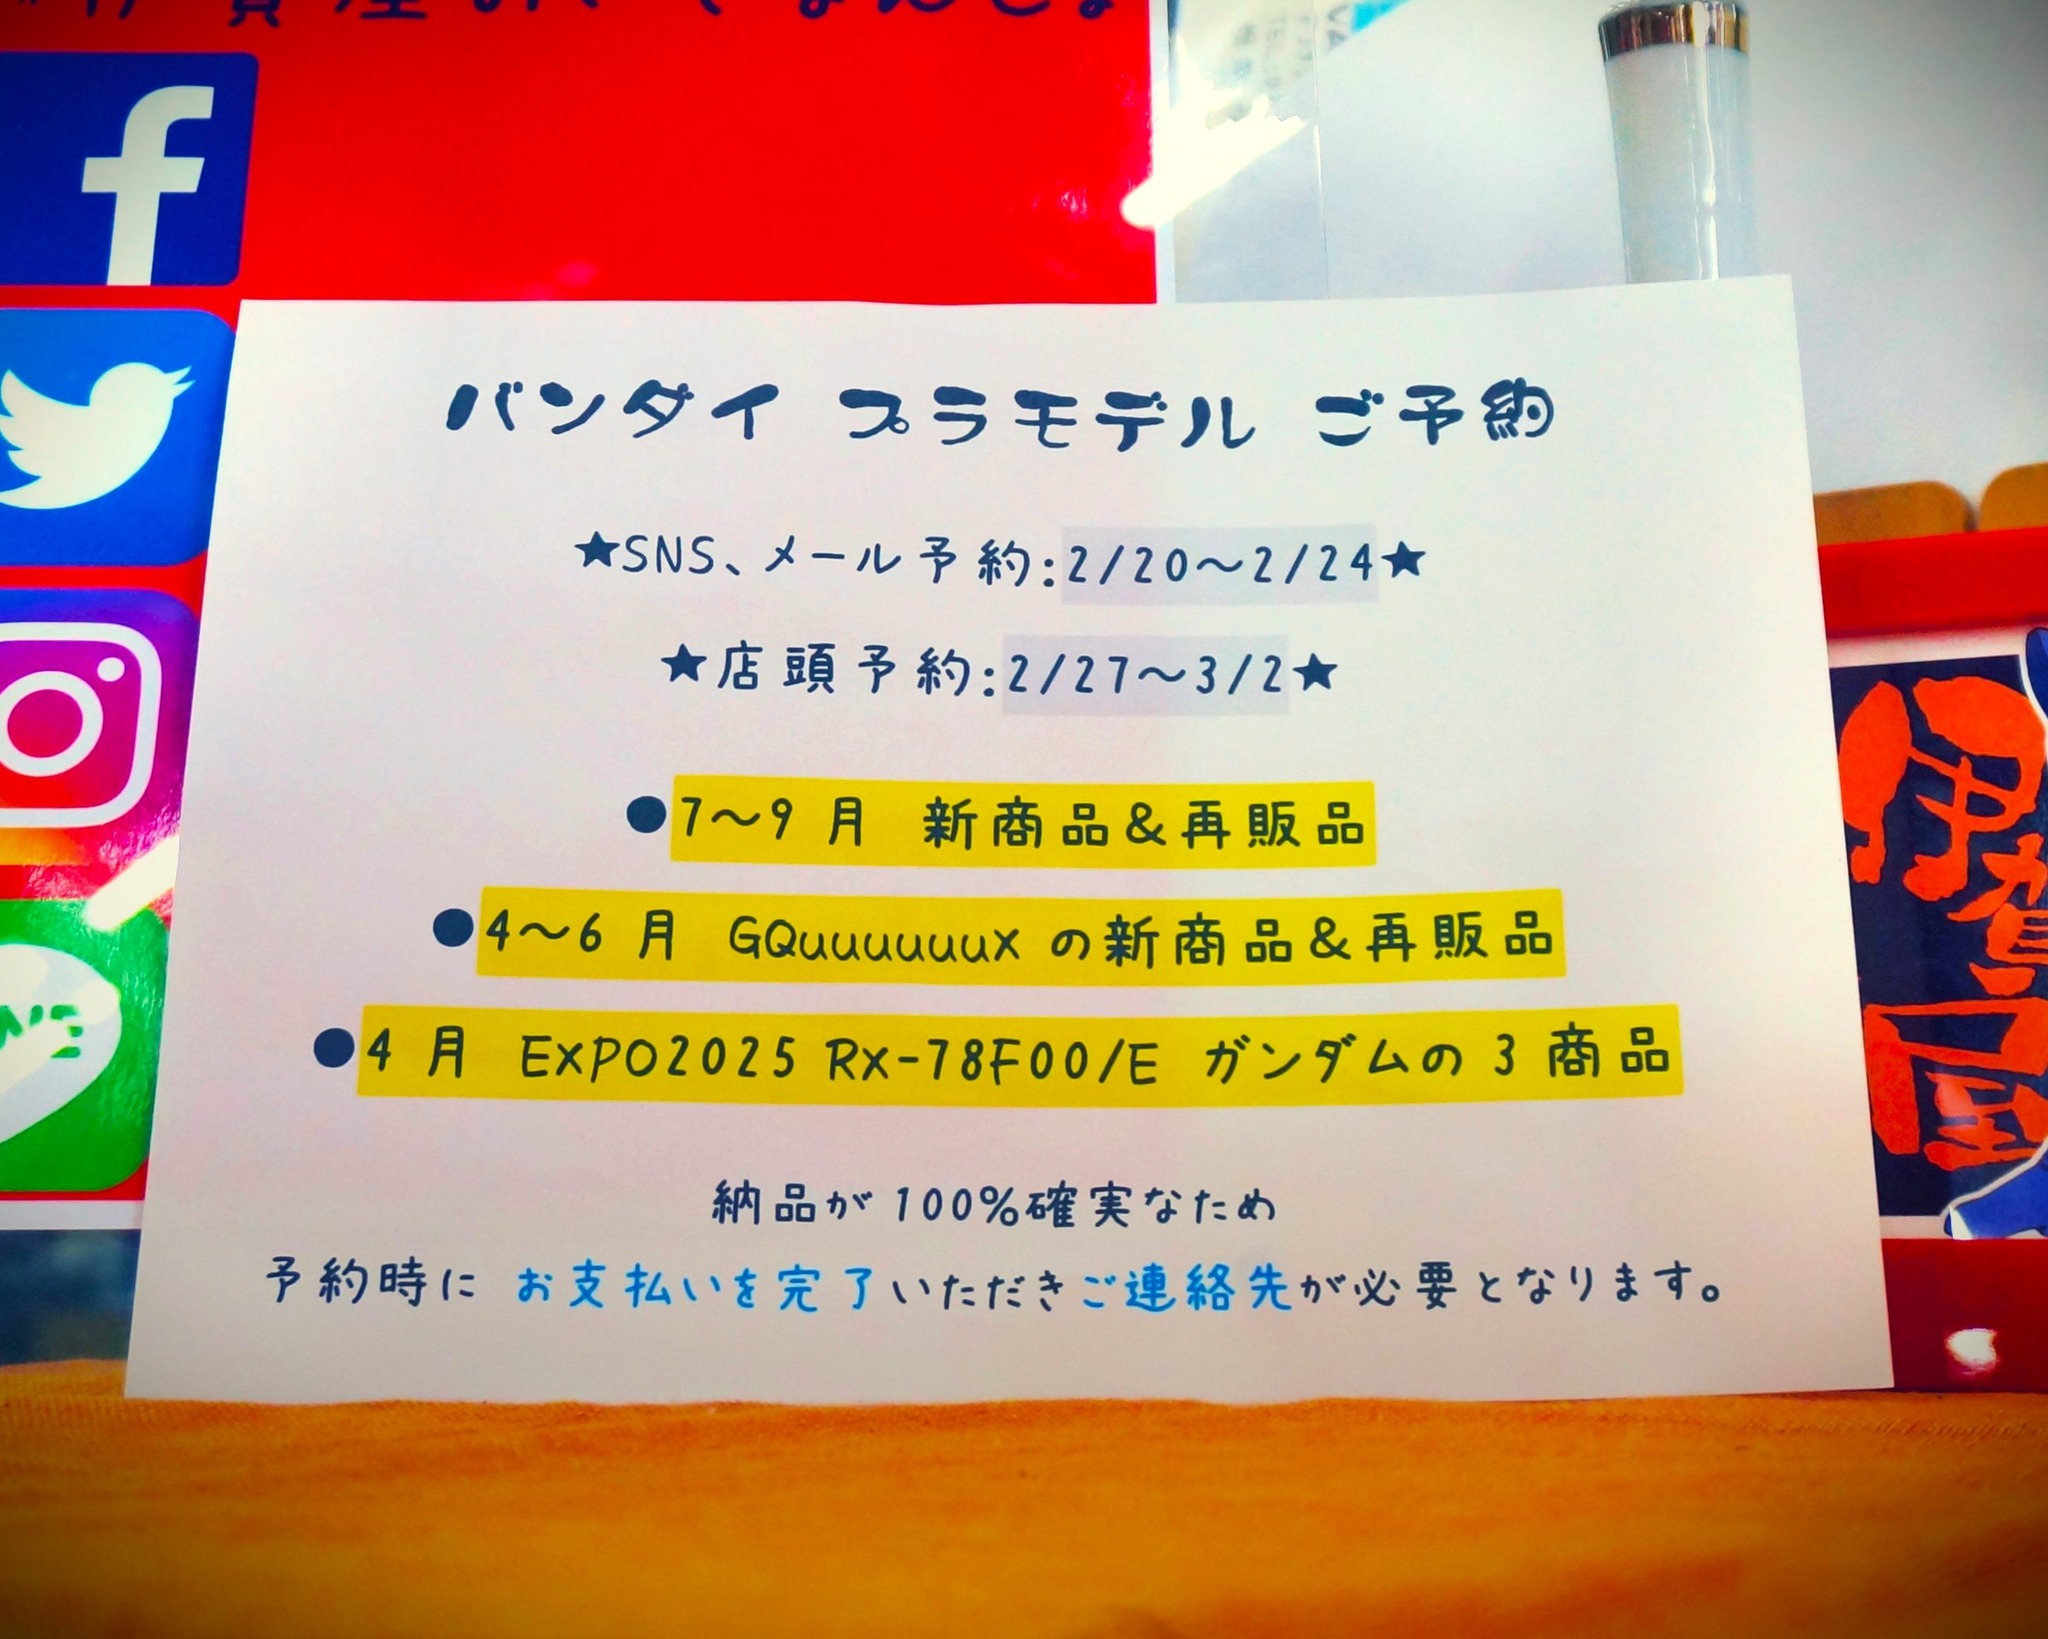 バンダイ プラモデル ご予約
★SNS、メール予約:2/20～2/24★
★店頭予約:2/27～3/2★
●7～9月 新商品&再販品
●4～6月 GQuuuuuuXの新商品&再販品
●4月 EXPO2025 RX-78F00/E ガンダムの3商品
納品が100%確実なため
予約時に お支払いを完了いただきご連絡先が必要となります。
伊賀屋